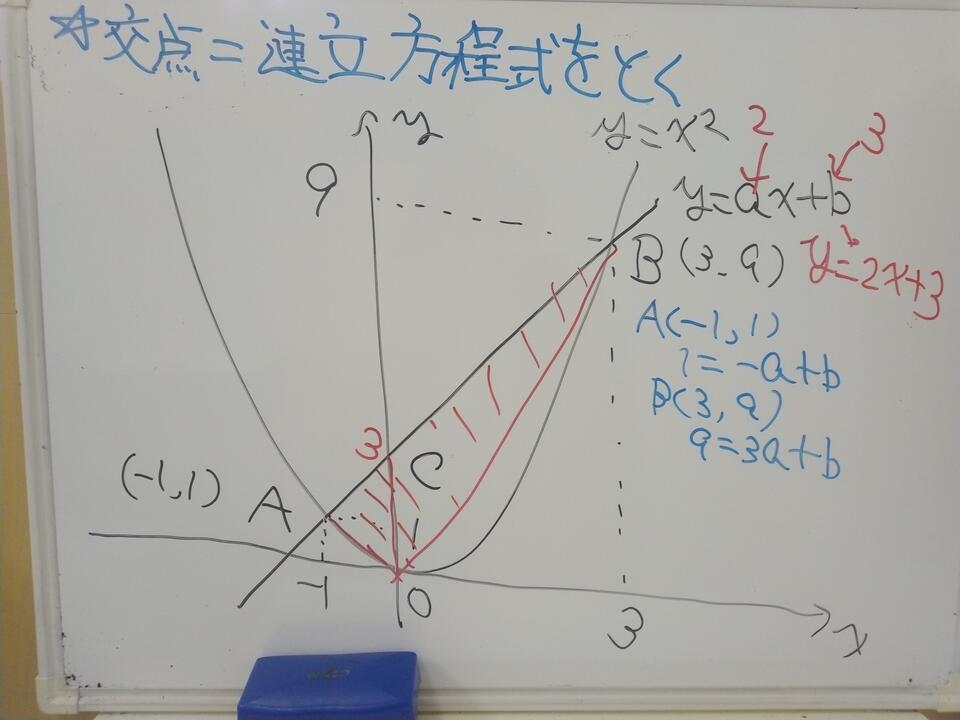 ☆交点=連立方程式をとく
y
y=x²
2
3
9
y=ax+b
B(3,9)
y=2x+3
A(-1,1)
1=-a+b
B(3,9)
9=3a+b
3
C
(-1,1)
A
1
-1
0
3
x